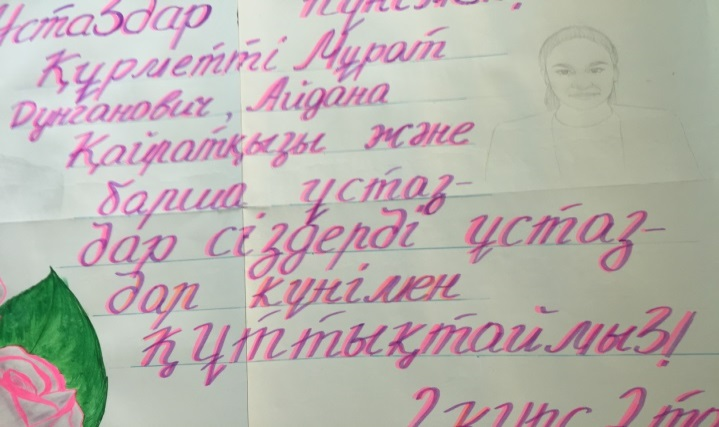 Ұстаздар күнімен!
Құрметті Мұрат
Дунганович, Айдана
Қайратқызы және
барша ұстаз-
дар сіздерді ұстаз-
дар күнімен
құттықтаймыз!
2 курс 2